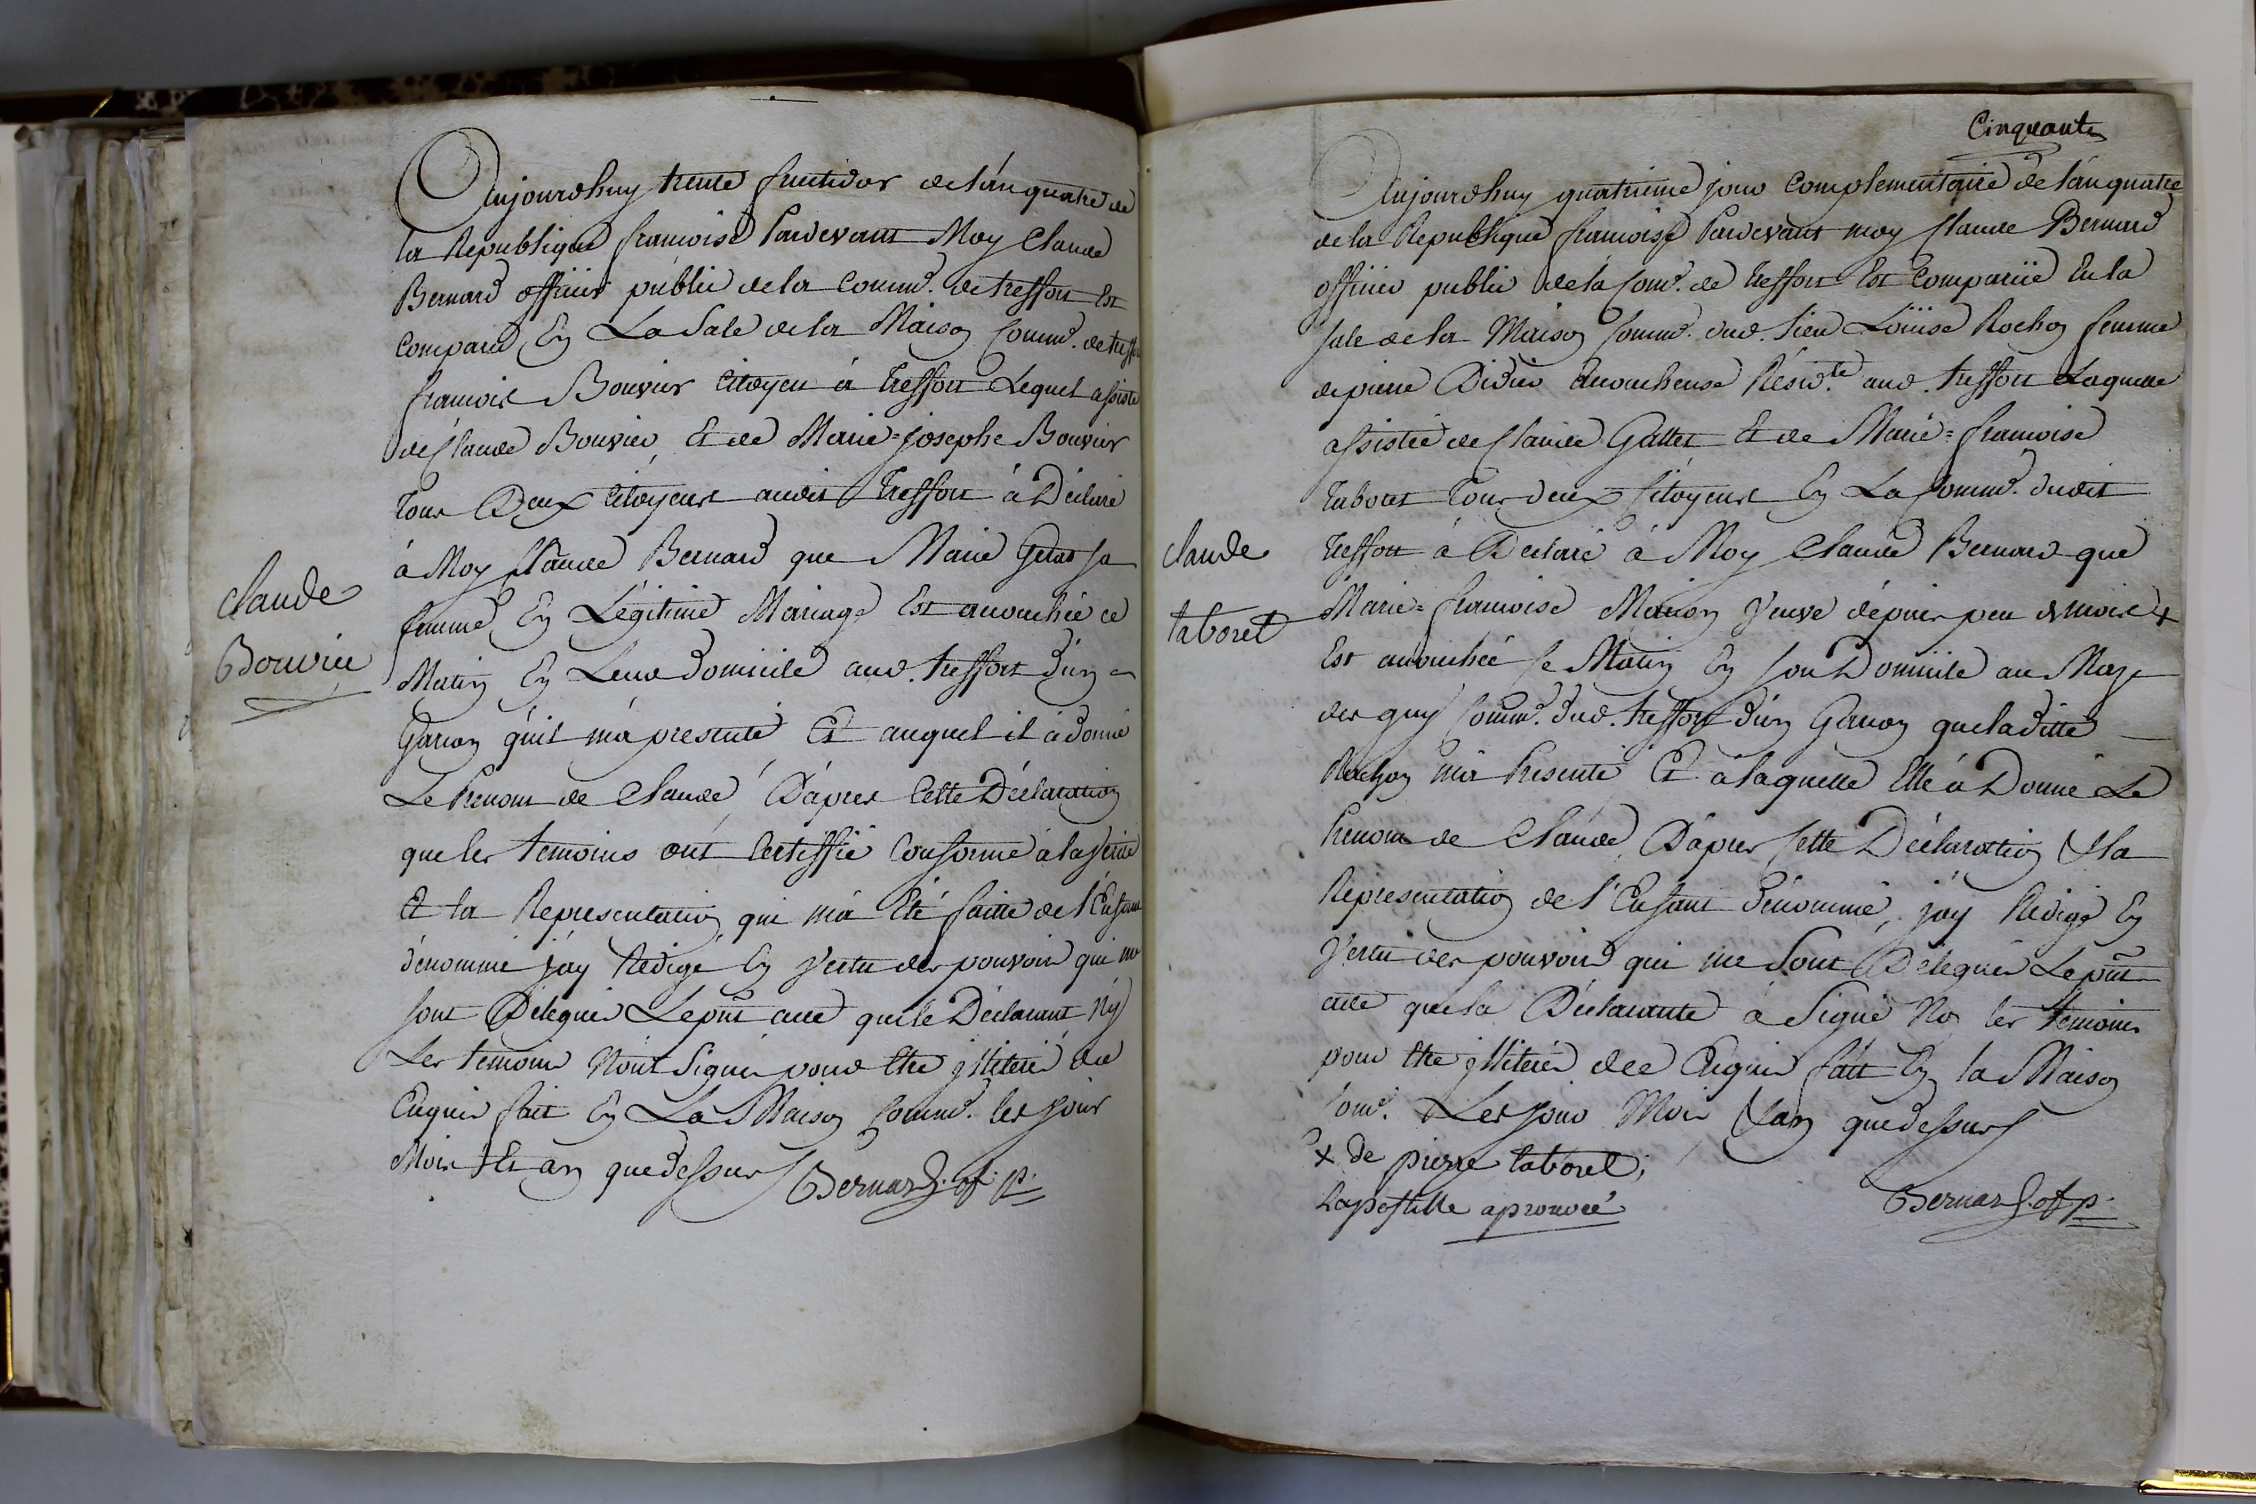 Aujourdhuy trente fructidor de lán quatre de
la Republique francoise Pardevant Moy Claude
Bernard officier public de la Comm.e de treffort Est
Comparu En La Sale de la Maison Comm.e de treffort
francois Bouvier Citoyen á treffort Lequel assisté
de Claude Bouvier, Et de Marie=josephe Bouvier
tous Deux Citoyens audit treffort á Déclaré
á Moy Claude Bernard que Marie sa
femme En Légitime Mariage Est acouchée ce
Matin En Leur Domicile aud. treffort d'ún
Garcon qúil má presenté Et auquel il á Donné
Le Prenom de Claude, Dápres Cette Déclaration
que les temoins ont Certiffié Conforme á la verité
Et la Representation qui má Eté faitte de l'Enfant
dénommé jáy Redigé En vertu des pouvoirs qui me
sont Délegués Le pñt acte que le Déclarant Ny
Les temoins Nónt Signés pour Etre jlliterés de ce
Enquis fait En La Maison Comm.e les jour
Mois Et an que dessus Bernard. of. p.
claude
Bouvier
Cinquante
Aujourdhuy quatrieme jour Complementaire de lán quatre
de la Republique francoise Pardevant moy Claude Bernard
officier public de la Com.e de treffort Est Comparüe En la
sale de la Maison Comm.e dud. lieu Loüise Rochon femme
de pierre Didier acoucheuse Résid.te aud. treffort Laquelle
assistée de Claude Gallet Et de Marie=francoise
taboret tous deux Citoyens En La Comm.e dudit
treffort á Déclaré á Moy Claude Bernard que
Marie=francoise Veuve dépuis peu de mois +
Est acouchée Ce Matin En son Domicile au Maz
des guy Comm.e dud. treffort dún Garcon que laditte
Rochon má Présenté Et á laquelle Elle á Donné Le
Prenom de Claude, Dápres Cette Déclaration & la
Representation de l'Enfant dénommé, jáy Redigé En
Vertu des pouvoirs qui me sont Délegués Le pñt
acte que la Déclarante á Signé No les temoins
pour Etre jlliterés de ce Enquis fait En la Maison
Com.e Les jour Mois & an que dessus
+ de pierre taborel;
Lapostille aprouvée
Bernard. of p.
claude
taborel